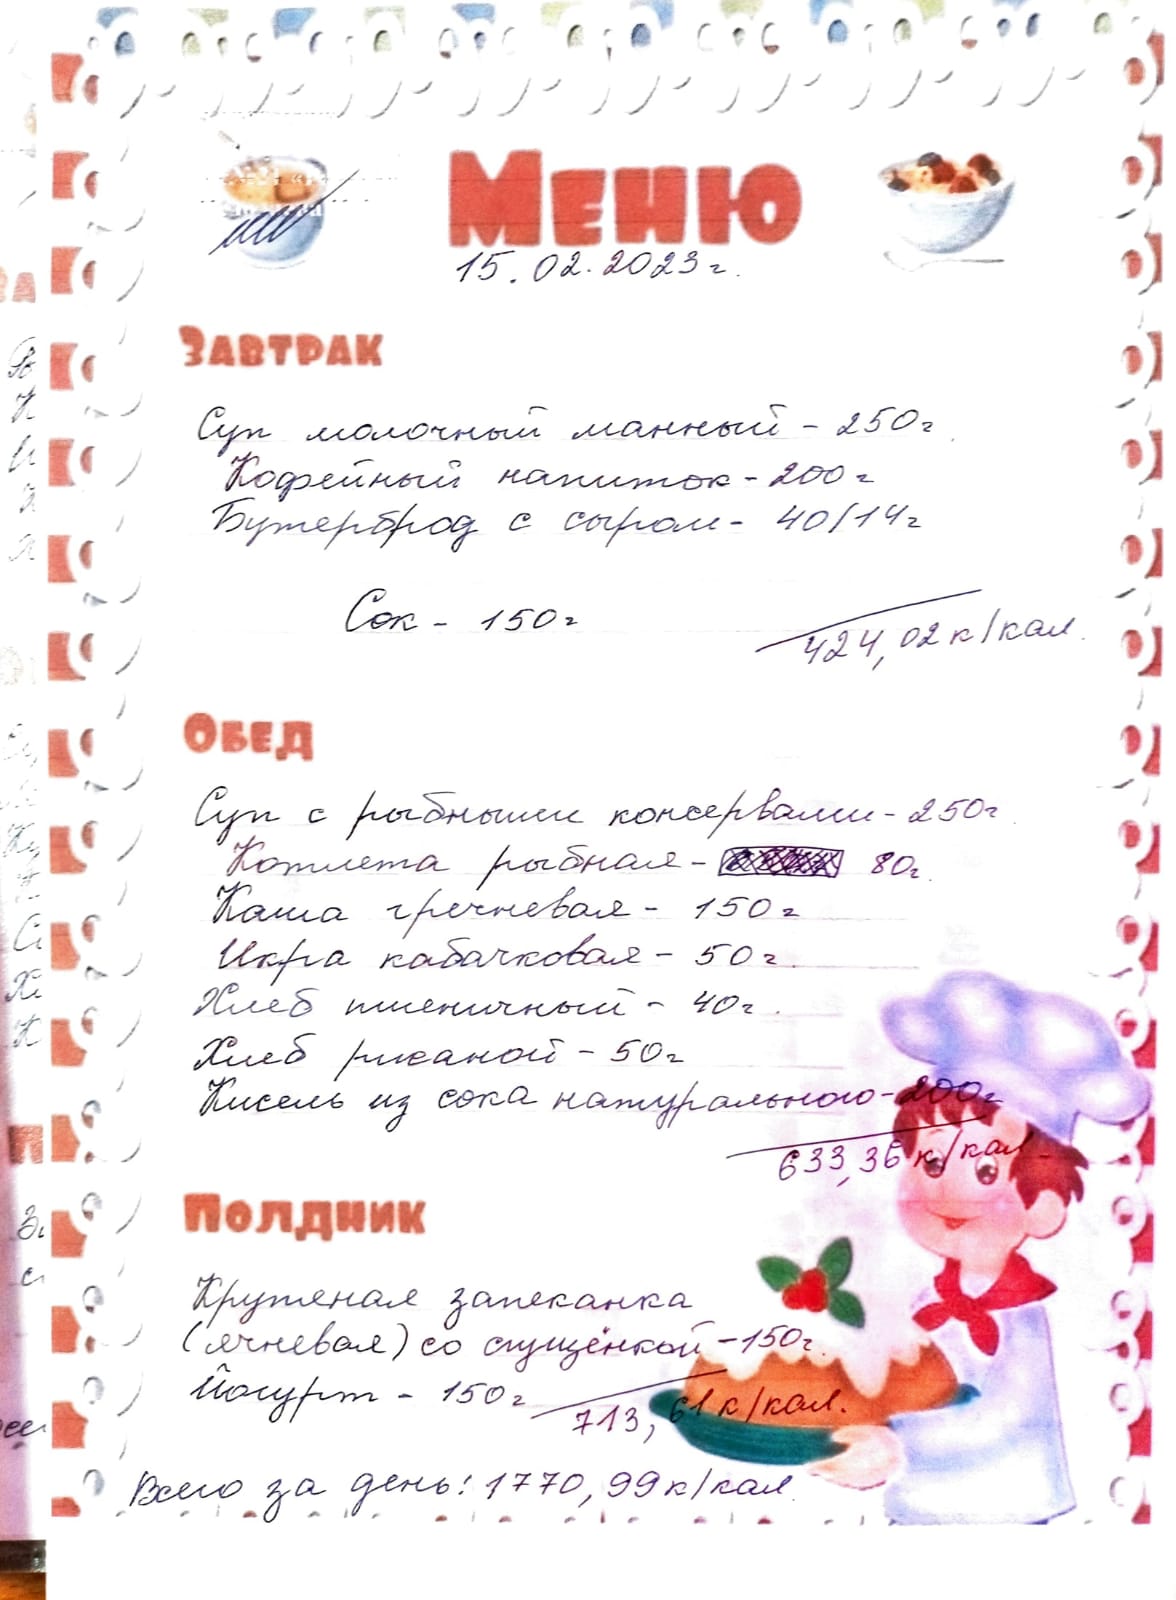 Меню
15.02.2023г.
Завтрак
Суп молочный манный - 250г.
Кофейный напиток - 200г
Бутерброд с сыром - 40/14г
Сок - 150г
424,02 к/кал.
Обед
Суп с рыбными консервами - 250г.
Котлета рыбная - 80г.
Каша гречневая - 150г
Икра кабачковая - 50г.
Хлеб пшеничный - 40г.
Хлеб ржаной - 50г
Кисель из сока натурального - 200г
633,36 к/кал.
Полдник
Крупеная запеканка
(ячневая) со сгущёнкой - 150г.
Йогурт - 150г
713,61 к/кал.
Всего за день: 1770,99 к/кал.